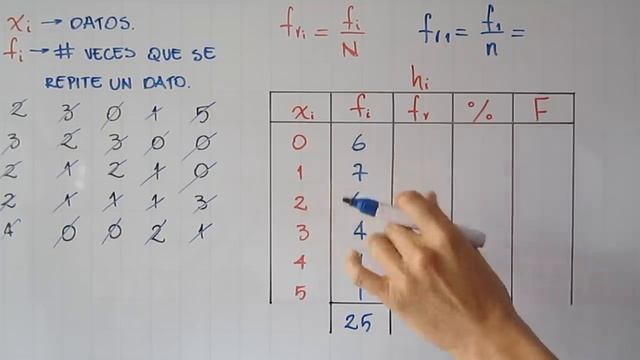 xi → DATOS.
fi → # VECES QUE SE
REPITE UN DATO.
2 3 0 1 5
3 2 3 0 0
2 1 2 1 0
2 1 1 1 3
4 0 0 2 1
fri = fi/N
fr1 = f1/n =
hi
xi fi fr % F
0 6
1 7
2
3 4
4
5 1
25